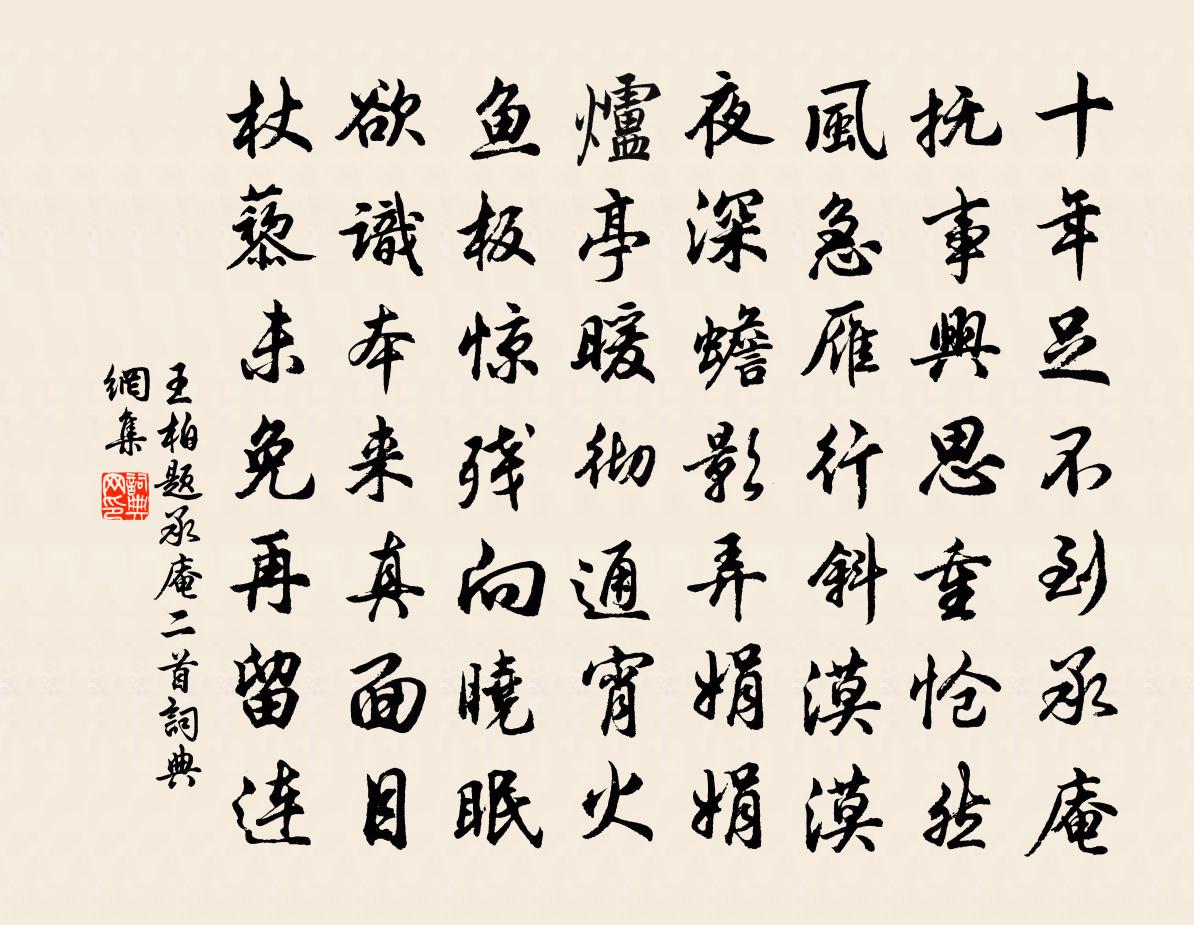 十年足不到承庵
抚事興思重怆然
風急雁行斜漠漠
夜深蟾影弄娟娟
爐亭暖彻通宵火
鱼板惊残向曉眠
欲識本来真面目
杖藜未免再留连
王柏题承庵二首詞典
網集
詞典网印